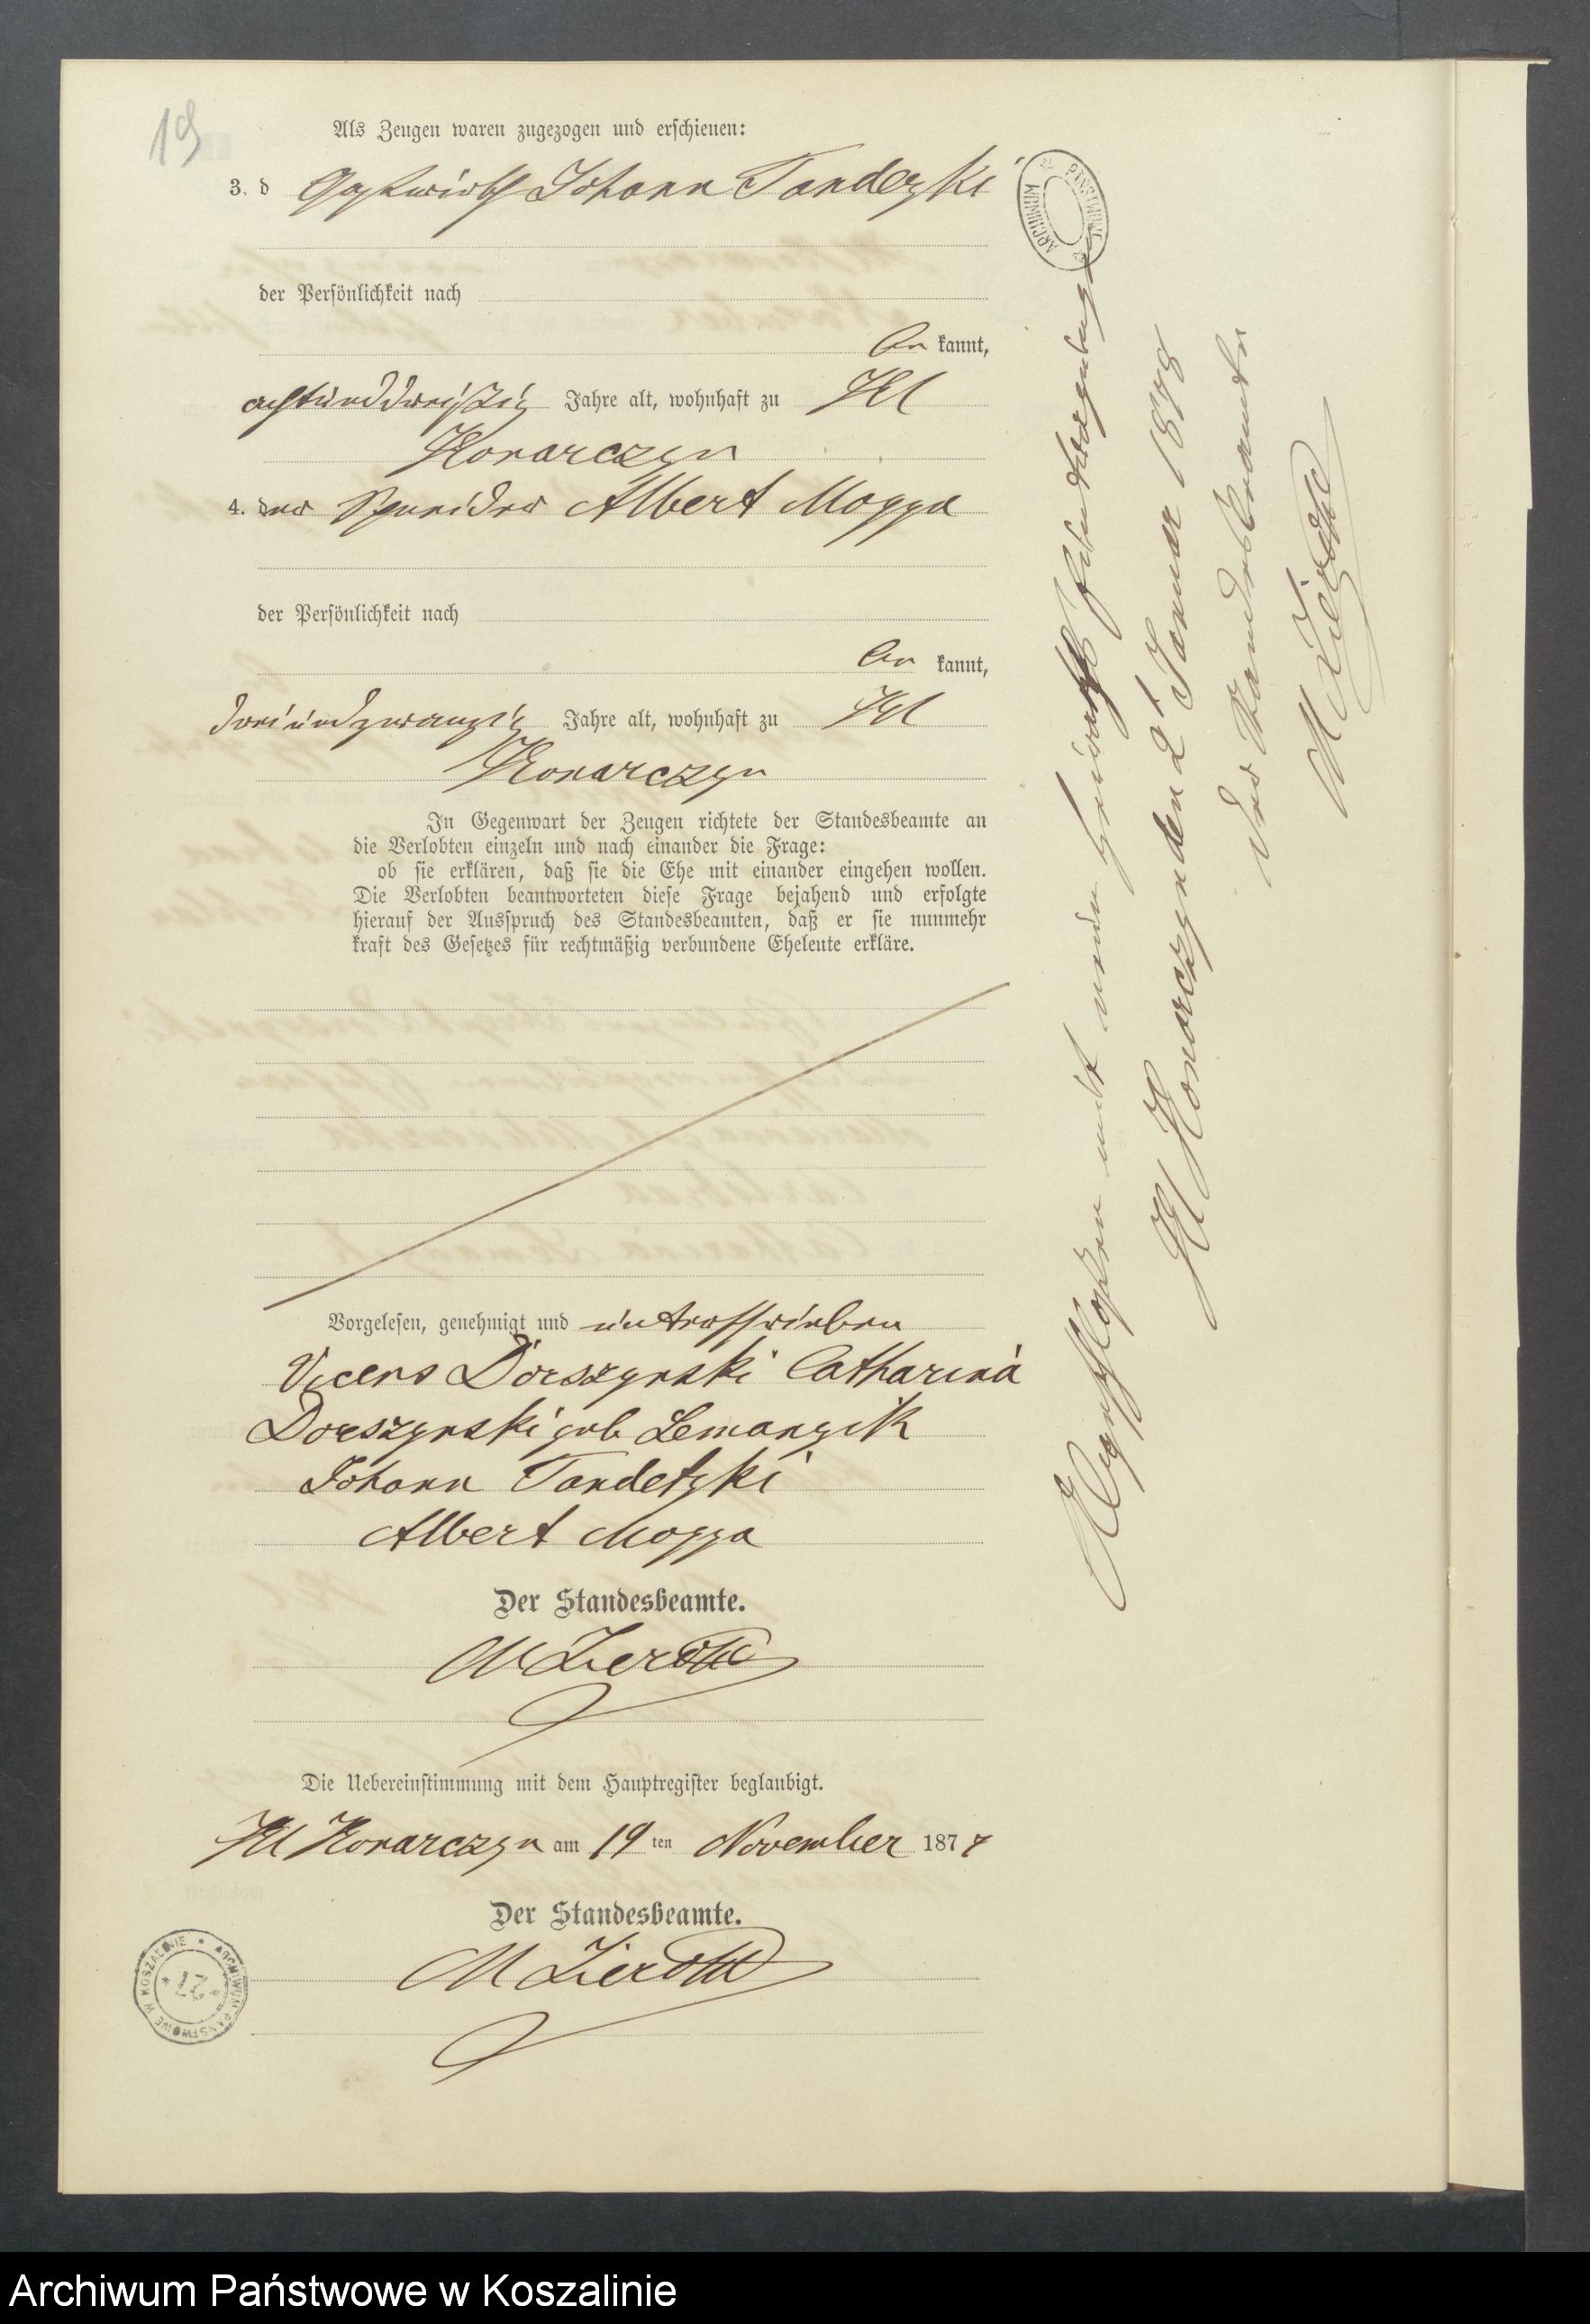 19
Als Zeugen waren zugezogen und erschienen:
3. d Gastwirth Johann Tandezki
der Persönlichkeit nach
be kannt,
achtunddreißzig Jahre alt, wohnhaft zu Kl
Konarczyn
4. der Schneider Albert Mogga
der Persönlichkeit nach
be kannt,
dreiundzwanzig Jahre alt, wohnhaft zu Kl
Konarczyn
In Gegenwart der Zeugen richtete der Standesbeamte an
die Verlobten einzeln und nach einander die Frage:
ob sie erklären, daß sie die Ehe mit einander eingehen wollen.
Die Verlobten beantworteten diese Frage bejahend und erfolgte
hierauf der Ausspruch des Standesbeamten, daß er sie nunmehr
kraft des Gesetzes für rechtmäßig verbundene Eheleute erkläre.
Vorgelesen, genehmigt und unterschrieben
Dorszynski Catharina
Dorszynski geb Lemanzik
Johann Tandetzki
Albert Mogga
Der Standesbeamte.
M Zierott
Die Uebereinstimmung mit dem Hauptregister beglaubigt.
Kl Konarczyn am 19 ten November 1877
Der Standesbeamte.
M Zierott
Abgeschlossen mit neun
Kl Konarczyn den 2t Januar 1878
Der Standesbeamte
M Zierott
ARCHIWUM PAŃSTWOWE
ARCHIWUM PAŃSTWOWE W KOSZALINIE
27
Archiwum Państwowe w Koszalinie